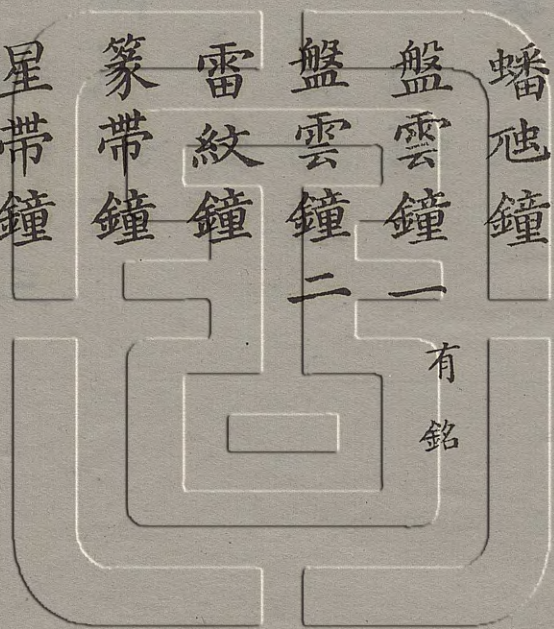 蟠虺鐘
盤雲鐘一 有銘
盤雲鐘二
雷紋鐘
篆帶鐘
星帶鐘